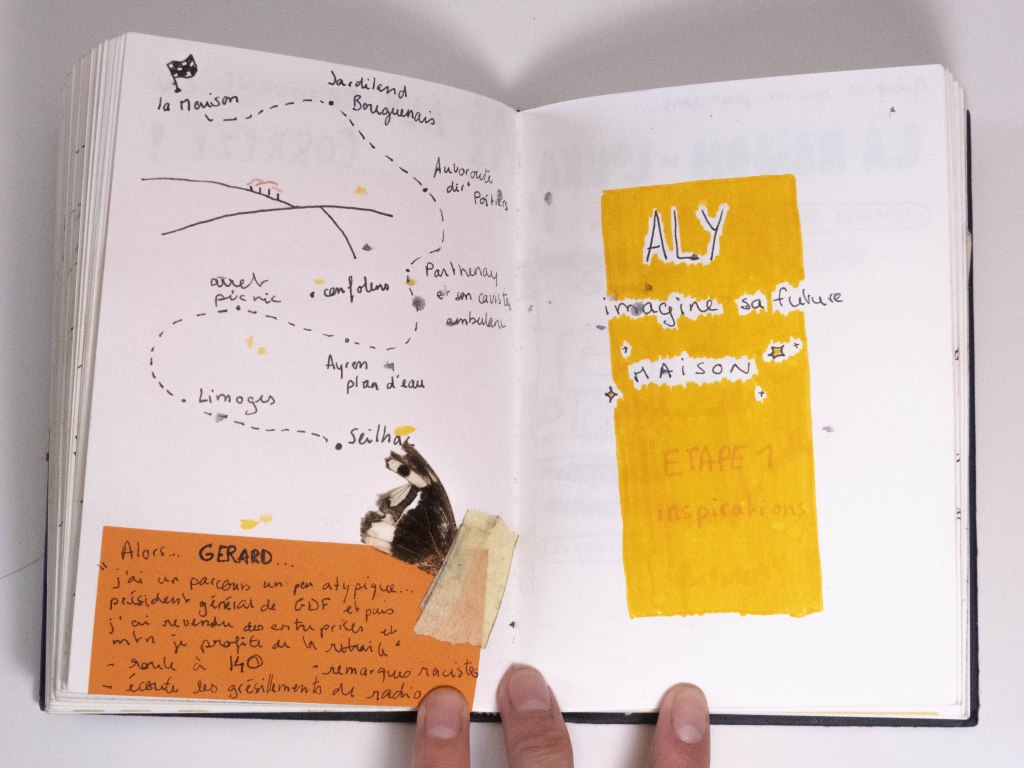 la Maison
Jardiland
Bouguenais
Autoroute
dir° Poitiers
Parthenay
et son caviste
ambulant
confolens
arret
picnic
Ayron
plan d'eau
Limoges
Seilhac
Alors... GERARD...
"j'ai un parcours un peu atypique...
président général de GDF et puis
j'ai revendu des entreprises et
mtn je profite de la retraite"
- roule à 140 - remarques racistes
- écoute les grésillements de radio
ALY
imagine sa future
MAISON
ETAPE 1
inspirations